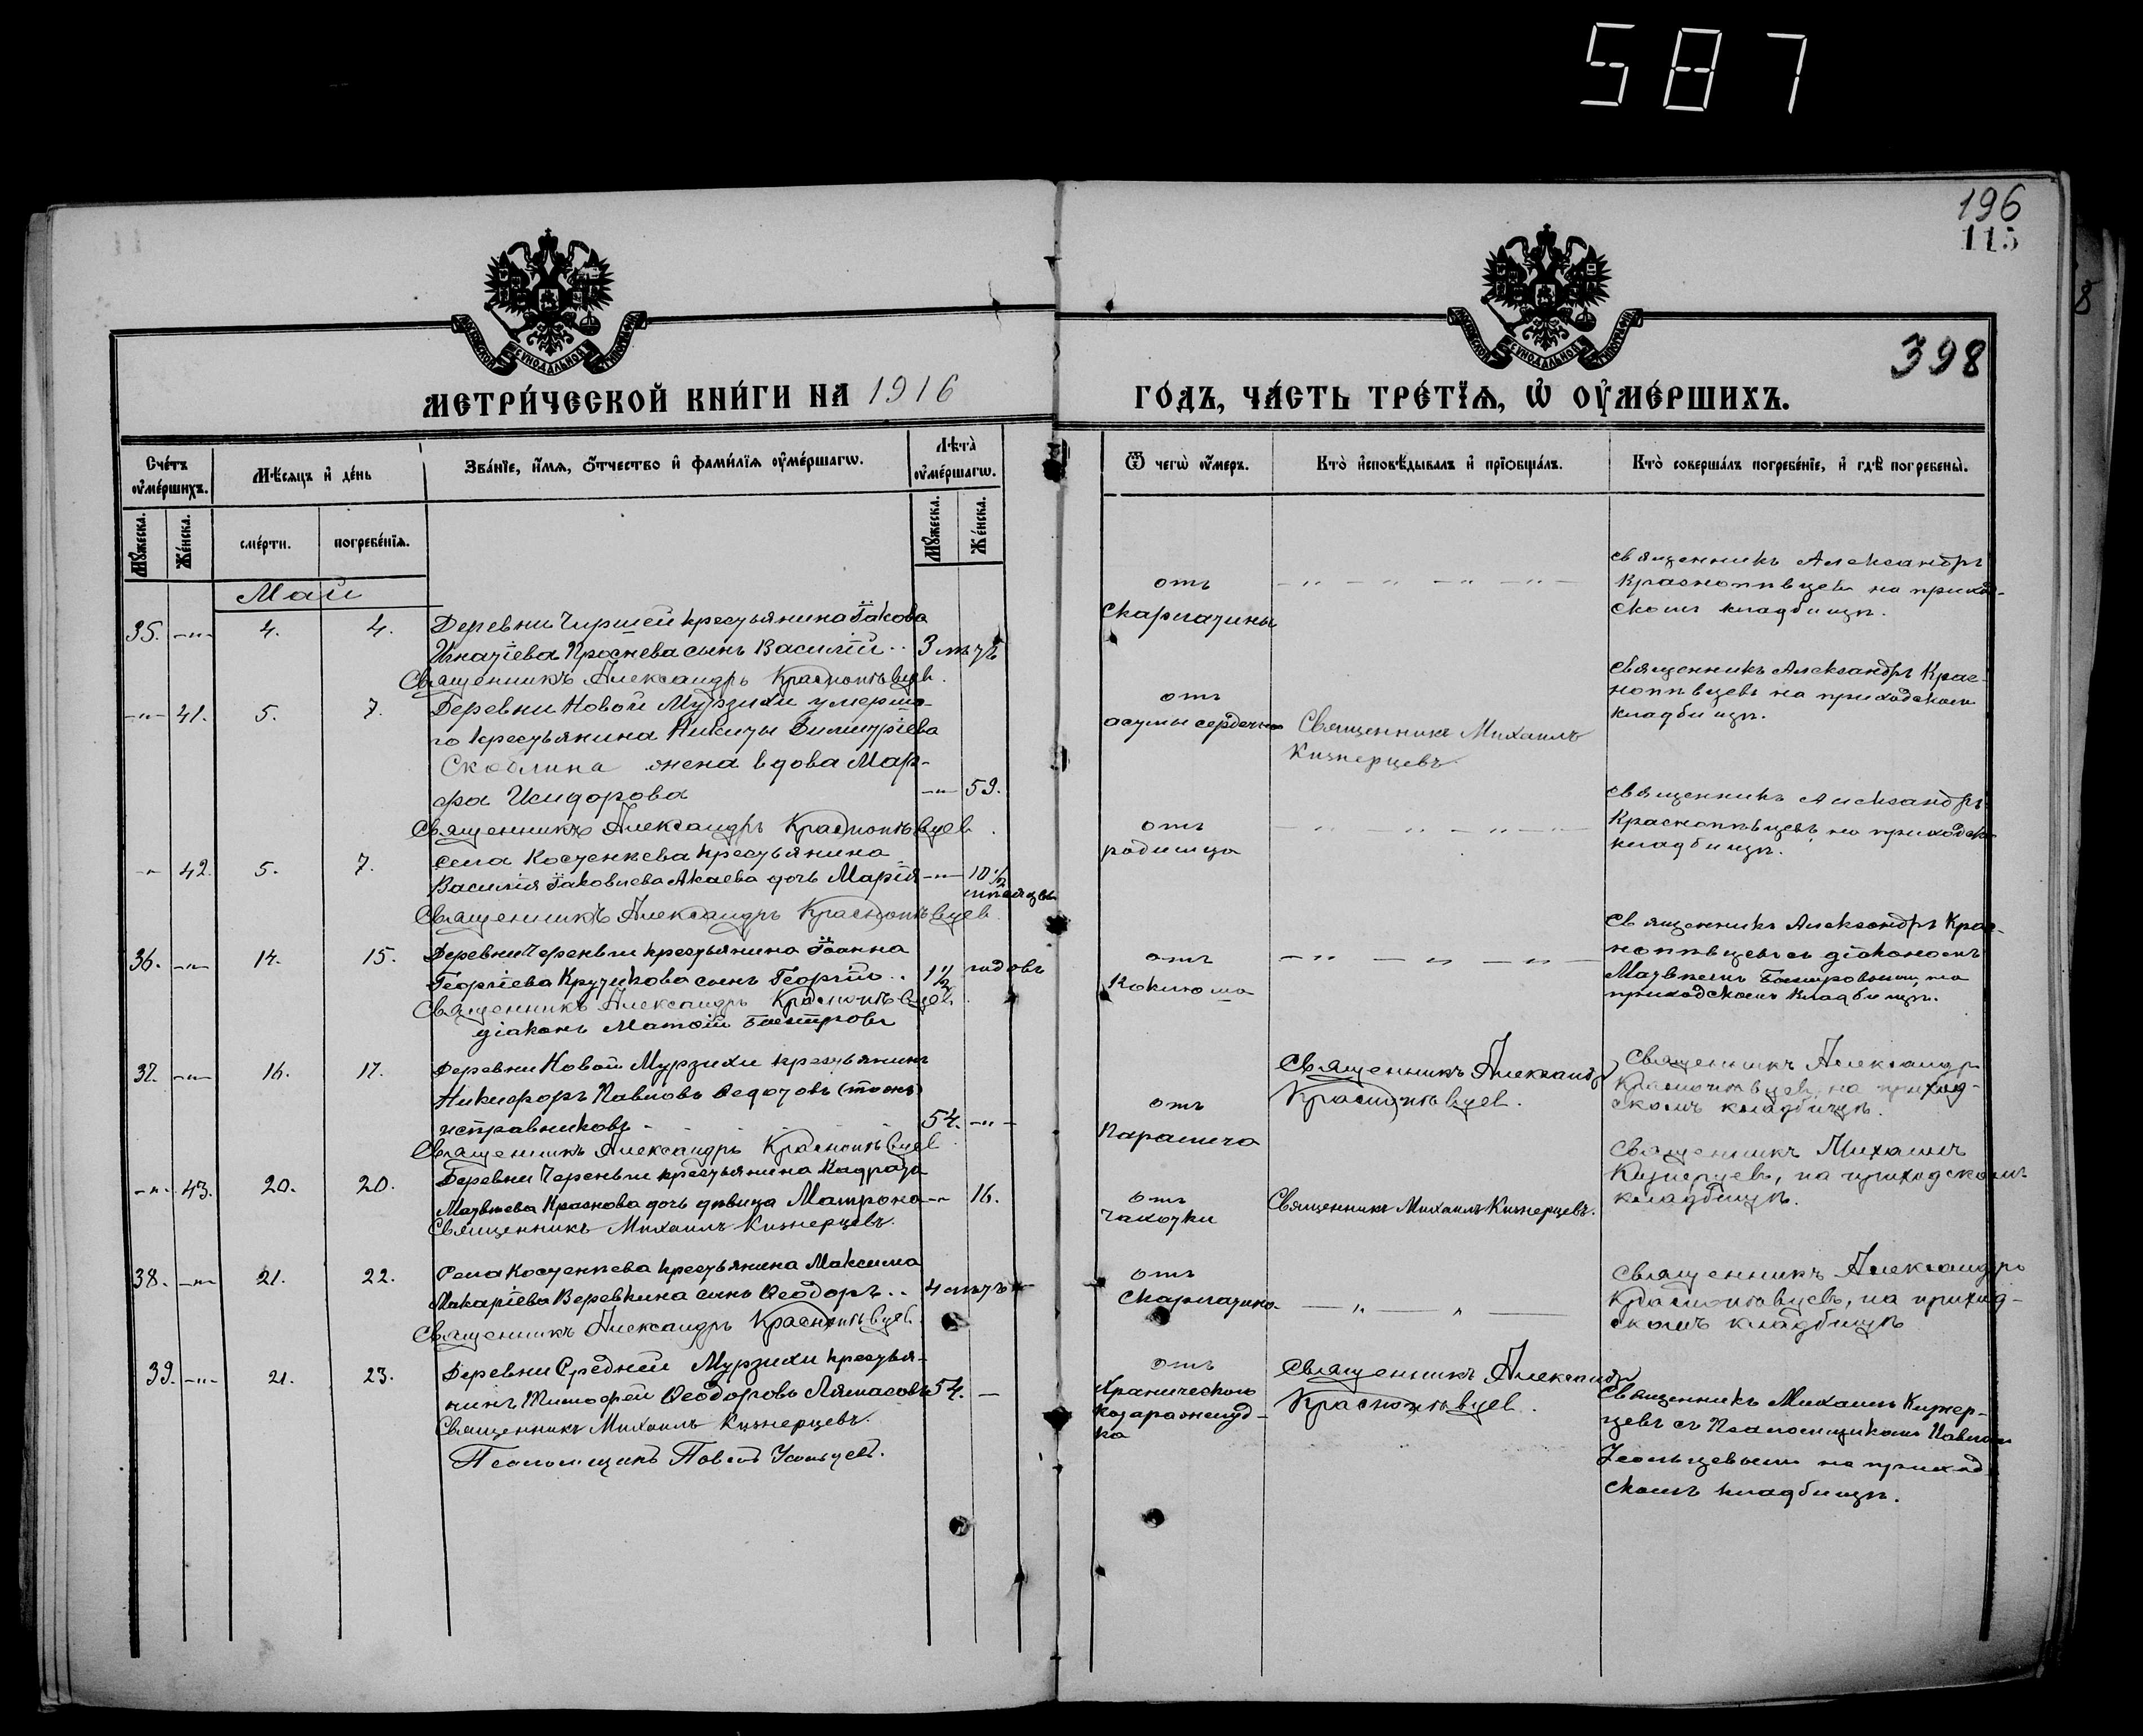 587
196
115
398
МЕТРИ́ЧЕСКОЙ КНИ́ГИ НА 1916
ГО́ДЪ, ЧА́СТЬ ТРЕ́ТЇѦ, Ѡ҆ ОУ҆МЕ́РШИХЪ.
Сче́тъ оу҆ме́ршихъ.
Мѣ́сяцъ и҆ де́нь
Зва́нїе, и҆́мѧ, ѻ҆́тчество и҆ фами́лїѧ оу҆ме́ршагѡ.
Лѣ́та̀ оу҆ме́ршагѡ.
Ѿ чегѡ̀ оу҆́меръ.
Кто̀ и҆сповѣ́дывалъ и҆ прїѡбща́лъ.
Кто̀ соверша́лъ погребе́нїе, и҆ гдѣ̀ погребены̀.
Мꙋ́жеска.
Же́нска.
сме́рти.
погребе́нїѧ.
Мꙋ́жеска.
Же́нска.
Май
35. -"- 4. 4. Деревни Чиршей крестьянина Іакова
Игнатіева сынъ Василій .. 3 лѣтъ
Священникъ Александръ Краснопѣвцев.
отъ
Скарлатины
священникъ Александръ
Краснопѣвцевъ на приход-
скомъ кладбищѣ.
-"- 41. 5. 7. Деревни Новой Мурзихи умерша-
го крестьянина Никиты Димитріева
Скоблина жена вдова Мар-
фа Исидорова -"- 59.
Священникъ Александръ Краснопѣвцев.
отъ
Священникъ Михаилъ
Кизнерцевъ
священникъ Александръ Крас-
нопѣвцевъ на приходскомъ
кладбищѣ.
-"- 42. 5. 7. села Костенеева крестьянина
Василія Іаковлева Акаева дочь Марія -"- 10 ½
мѣсяцевъ
Священникъ Александръ Краснопѣвцев.
отъ
родимца
священникъ Александръ
Краснопѣвцевъ на приходск.
кладбищѣ.
36. -"- 14. 15. Деревни крестьянина Іоанна
Георгіева Кручикова сынъ Георгій .. 1½ годовъ
Священникъ Александръ Краснопѣвцев.
діаконъ Матѳій
отъ
Коклюша
священникъ Александръ Крас-
нопѣвцевъ съ діакономъ
на
приходскомъ кладбищѣ.
37. -"- 16. 17. Деревни Новой Мурзихи крестьянинъ
Никифоръ Павловъ Ѳедотовъ (тожъ)
исправниковъ 54. -"-
Священникъ Александръ Краснопѣвцев
отъ
Паралича
Священникъ Александръ
Краснопѣвцев.
Священникъ Александръ
Краснопѣвцев, на приход-
скомъ кладбищѣ.
-"- 43. 20. 20. Деревни крестьянина Кодрата
Матвѣева Краснова дочь дѣвица Матрона -"- 16.
Священникъ Михаилъ Кизнерцевъ.
отъ
Чахотки
Священникъ Михаилъ Кизнерцевъ.
Священникъ Михаилъ
Кизнерцевъ, на приходскомъ
кладбищѣ.
38. -"- 21. 22. Села Костенеева крестьянина Максима
Макаріева Веревкина сынъ Ѳеодоръ .. 4 лѣтъ
Священникъ Александръ Краснопѣвцев.
отъ
Скарлатины
Священникъ Александръ
Краснопѣвцевъ, на приход-
скомъ кладбищѣ
39. -"- 21. 23. Деревни Средней Мурзихи крестья-
нинъ Тимофей Ѳеодоровъ 54. —
Священникъ Михаилъ Кизнерцевъ.
Псаломщикъ Павелъ Усольцевъ.
отъ
Хроническаго
ка
Священникъ Александръ
Краснопѣвцев.
Священникъ Михаилъ Кизнер-
цевъ съ Псаломщикомъ Павломъ
Усольцевымъ на приход-
скомъ кладбищѣ.